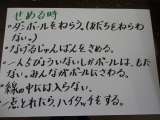 せめる時
・ダンボールをねらう。(ぼうたちをねらわない。)
・なげるじゅんばんをきめる。
・一人ひょういないしかボールは、もたない。みんながボールにさわる。
・線の中には入らない。
・とれたら、ハイタッチをする。